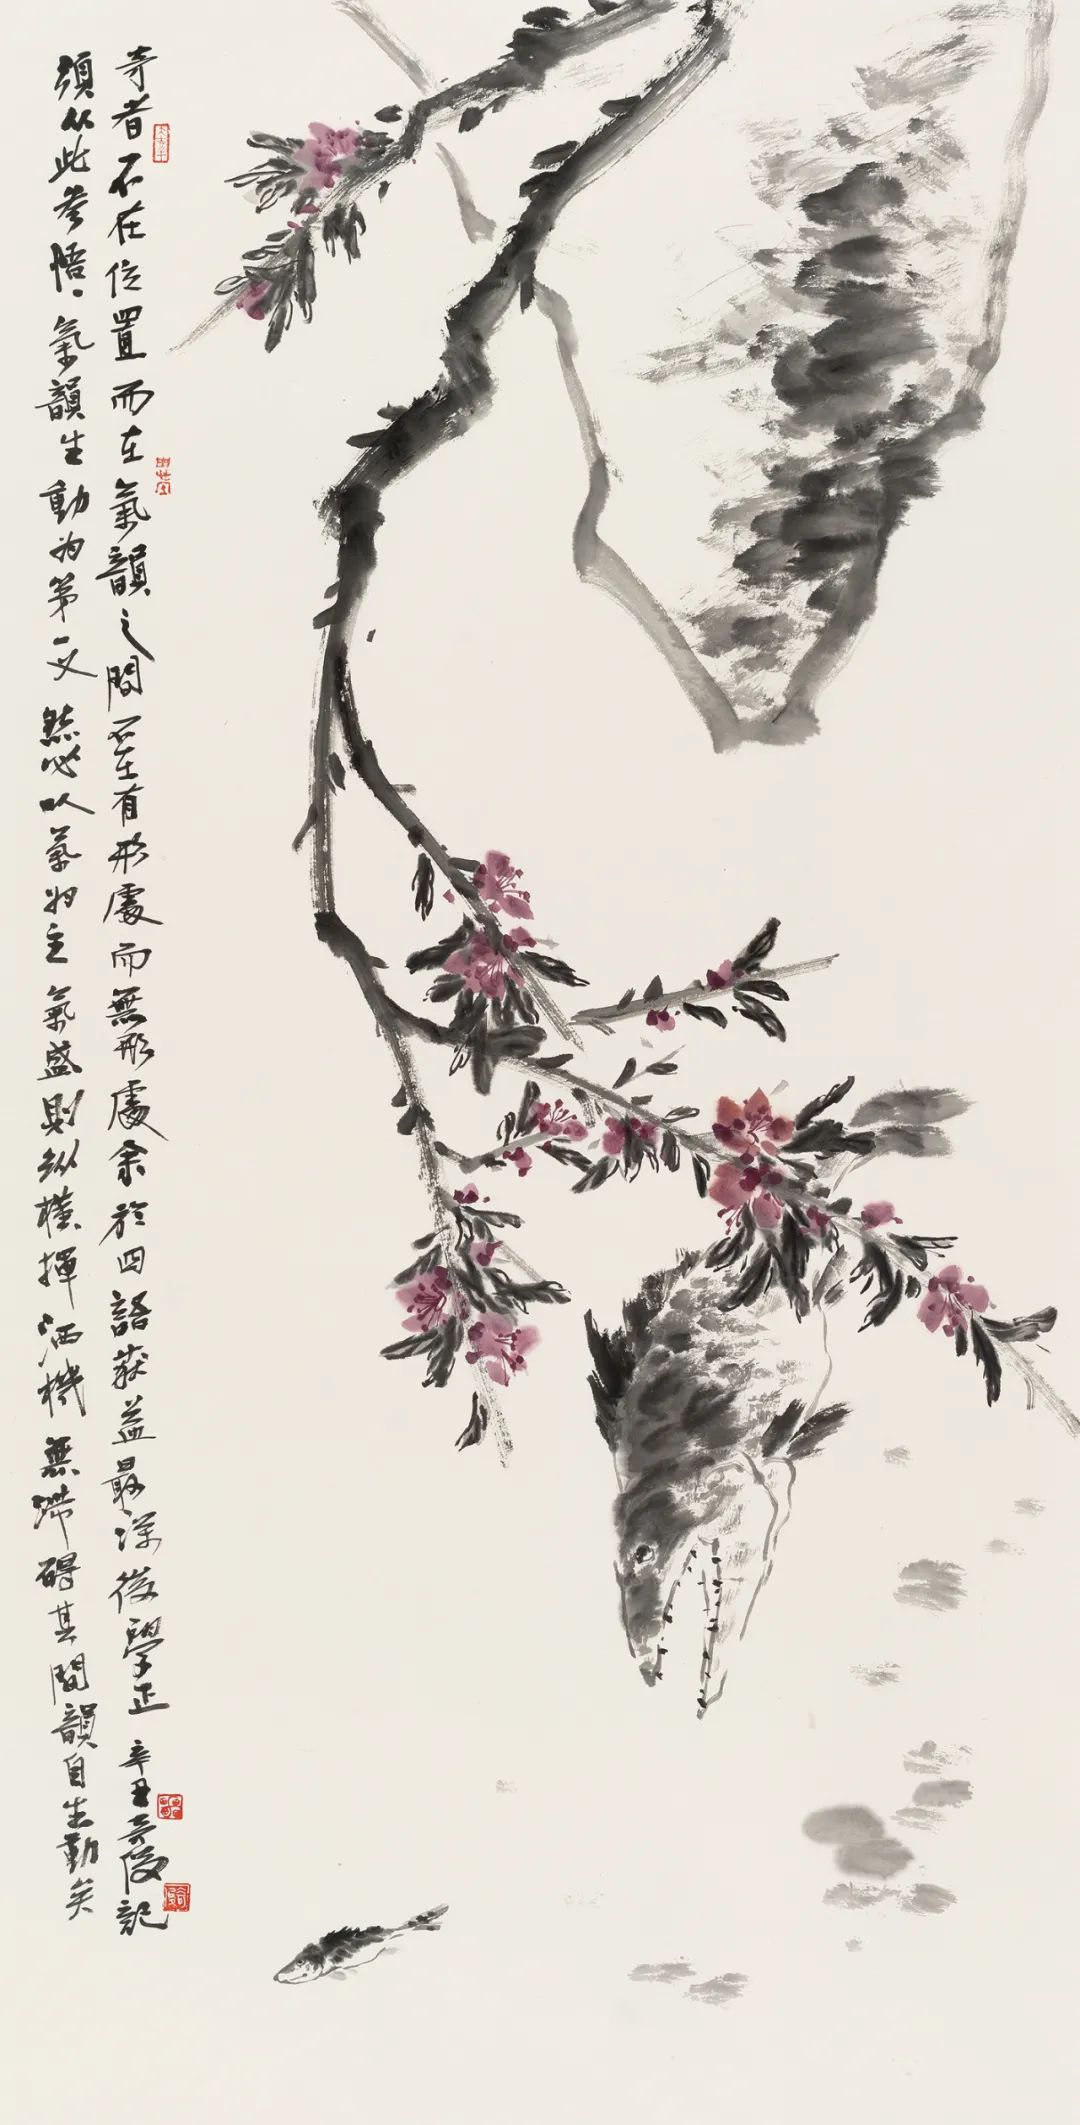 奇者不在位置而在氣韻之間不在有形處而無形處余於四語获益最深後學正 辛丑 記
須从此參悟氣韻生動为第一义然必以氣为主氣盛則纵橫揮洒機無滞碍其間韻自生動矣